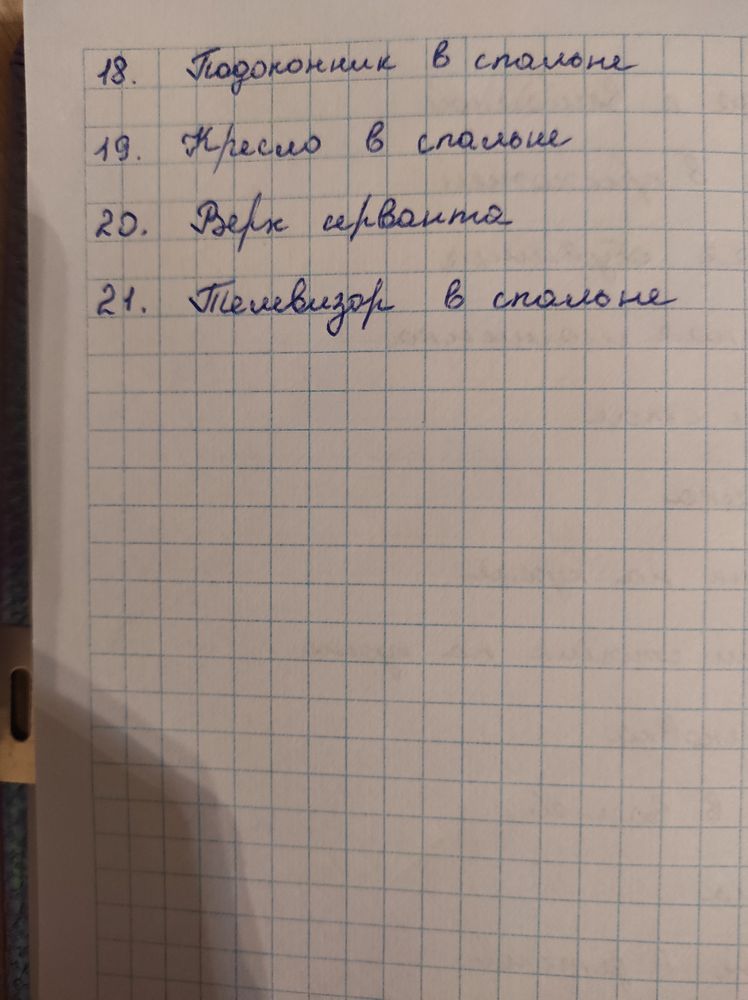 18. Подоконник в спальне
19. Кресло в спальне
20. Верх серванта
21. Телевизор в спальне